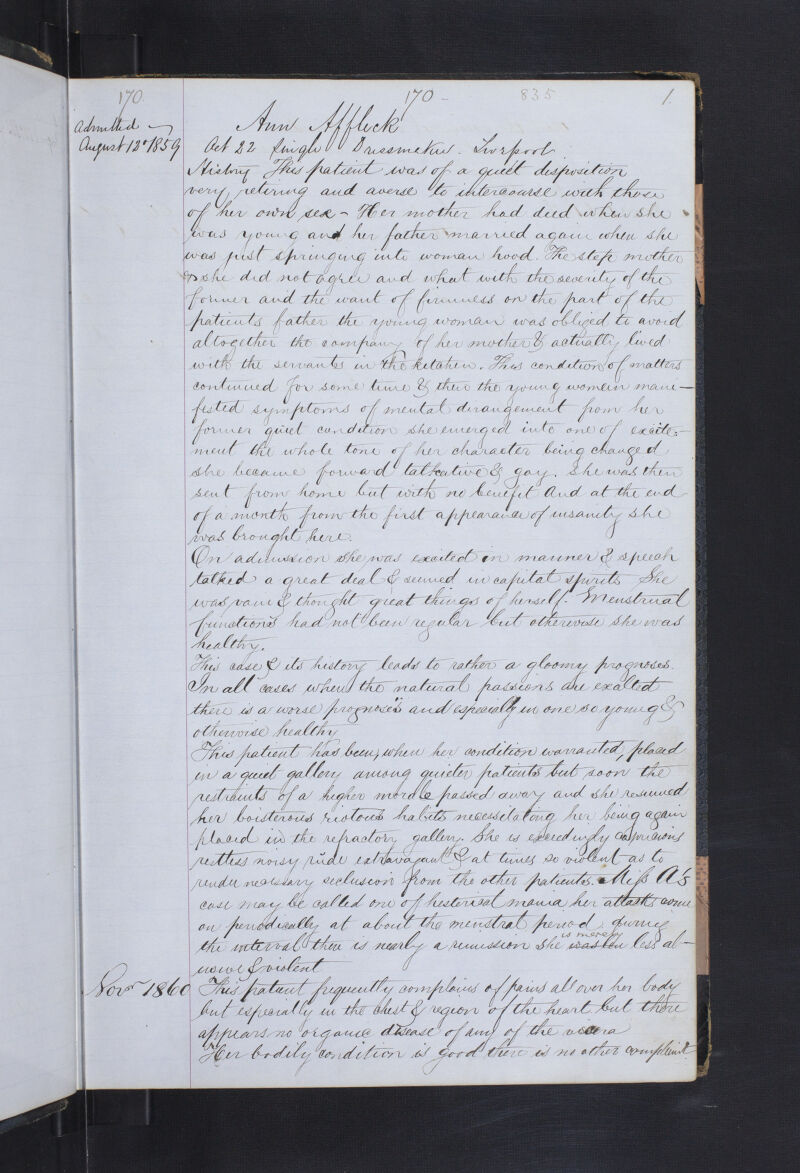 170. 170- 835 1.
Admitted
August 12th 1859
Ann Affleck
Aet 22 Single Dressmaker. Liverpool
History This patient was of a quiet disposition
very retiring and averse to intercourse with those
of her own sex - Her mother had died when she
was young and her father married again when she
was just springing into woman hood. The step mother
& she did not agree and what with the severity of the
former and the want of firmness on the part of the
patients father the young woman was obliged to avoid
altogether the company of her mother & actually lived
with the servants in the kitchen. This condition of matters
continued for some time & then the young woman mani-
fested symptoms of mental derangement from her
former quiet condition she emerged into one of excite-
ment the whole tone of her character being changed
she became forward talkative & gay. She was then
sent from home but with no benefit and at the end
of a month from the first appearance of insanity she
was brought here.
On admission she was excited in manner & speech
talked a great deal & seemed in capital spirits She
was vain & thought great things of herself. Menstrual
functions had not been regular but otherwise she was
healthy.
This case & its history leads to rather a gloomy prognoses.
In all cases where the natural passions are exalted
there is a worse prognosis and especially in one so young &
otherwise healthy
This patient has been, when her condition warranted, placed
in a quiet gallery among quieter patients but soon the
restraints of a higher morale passed away and she resumed
her boisterous riotous habits necessitating her being again
placed in the refractory gallery. She is exceedingly capricious
restless noisy rude extravagant & at times so violent as to
render necessary seclusion from the other patients. Miss A's
case may be called one of hesterical mania her attacks come
on periodically at about the menstral period, during
the interval there is nearly a remission she is merely less ab-
usive & violent
Novr 1860 This patient frequently complains of pains all over her body
but especially in the chest & region of the heart but there
appears no organic disease of any of the vicera
Her bodily condition is good there is no other complaint